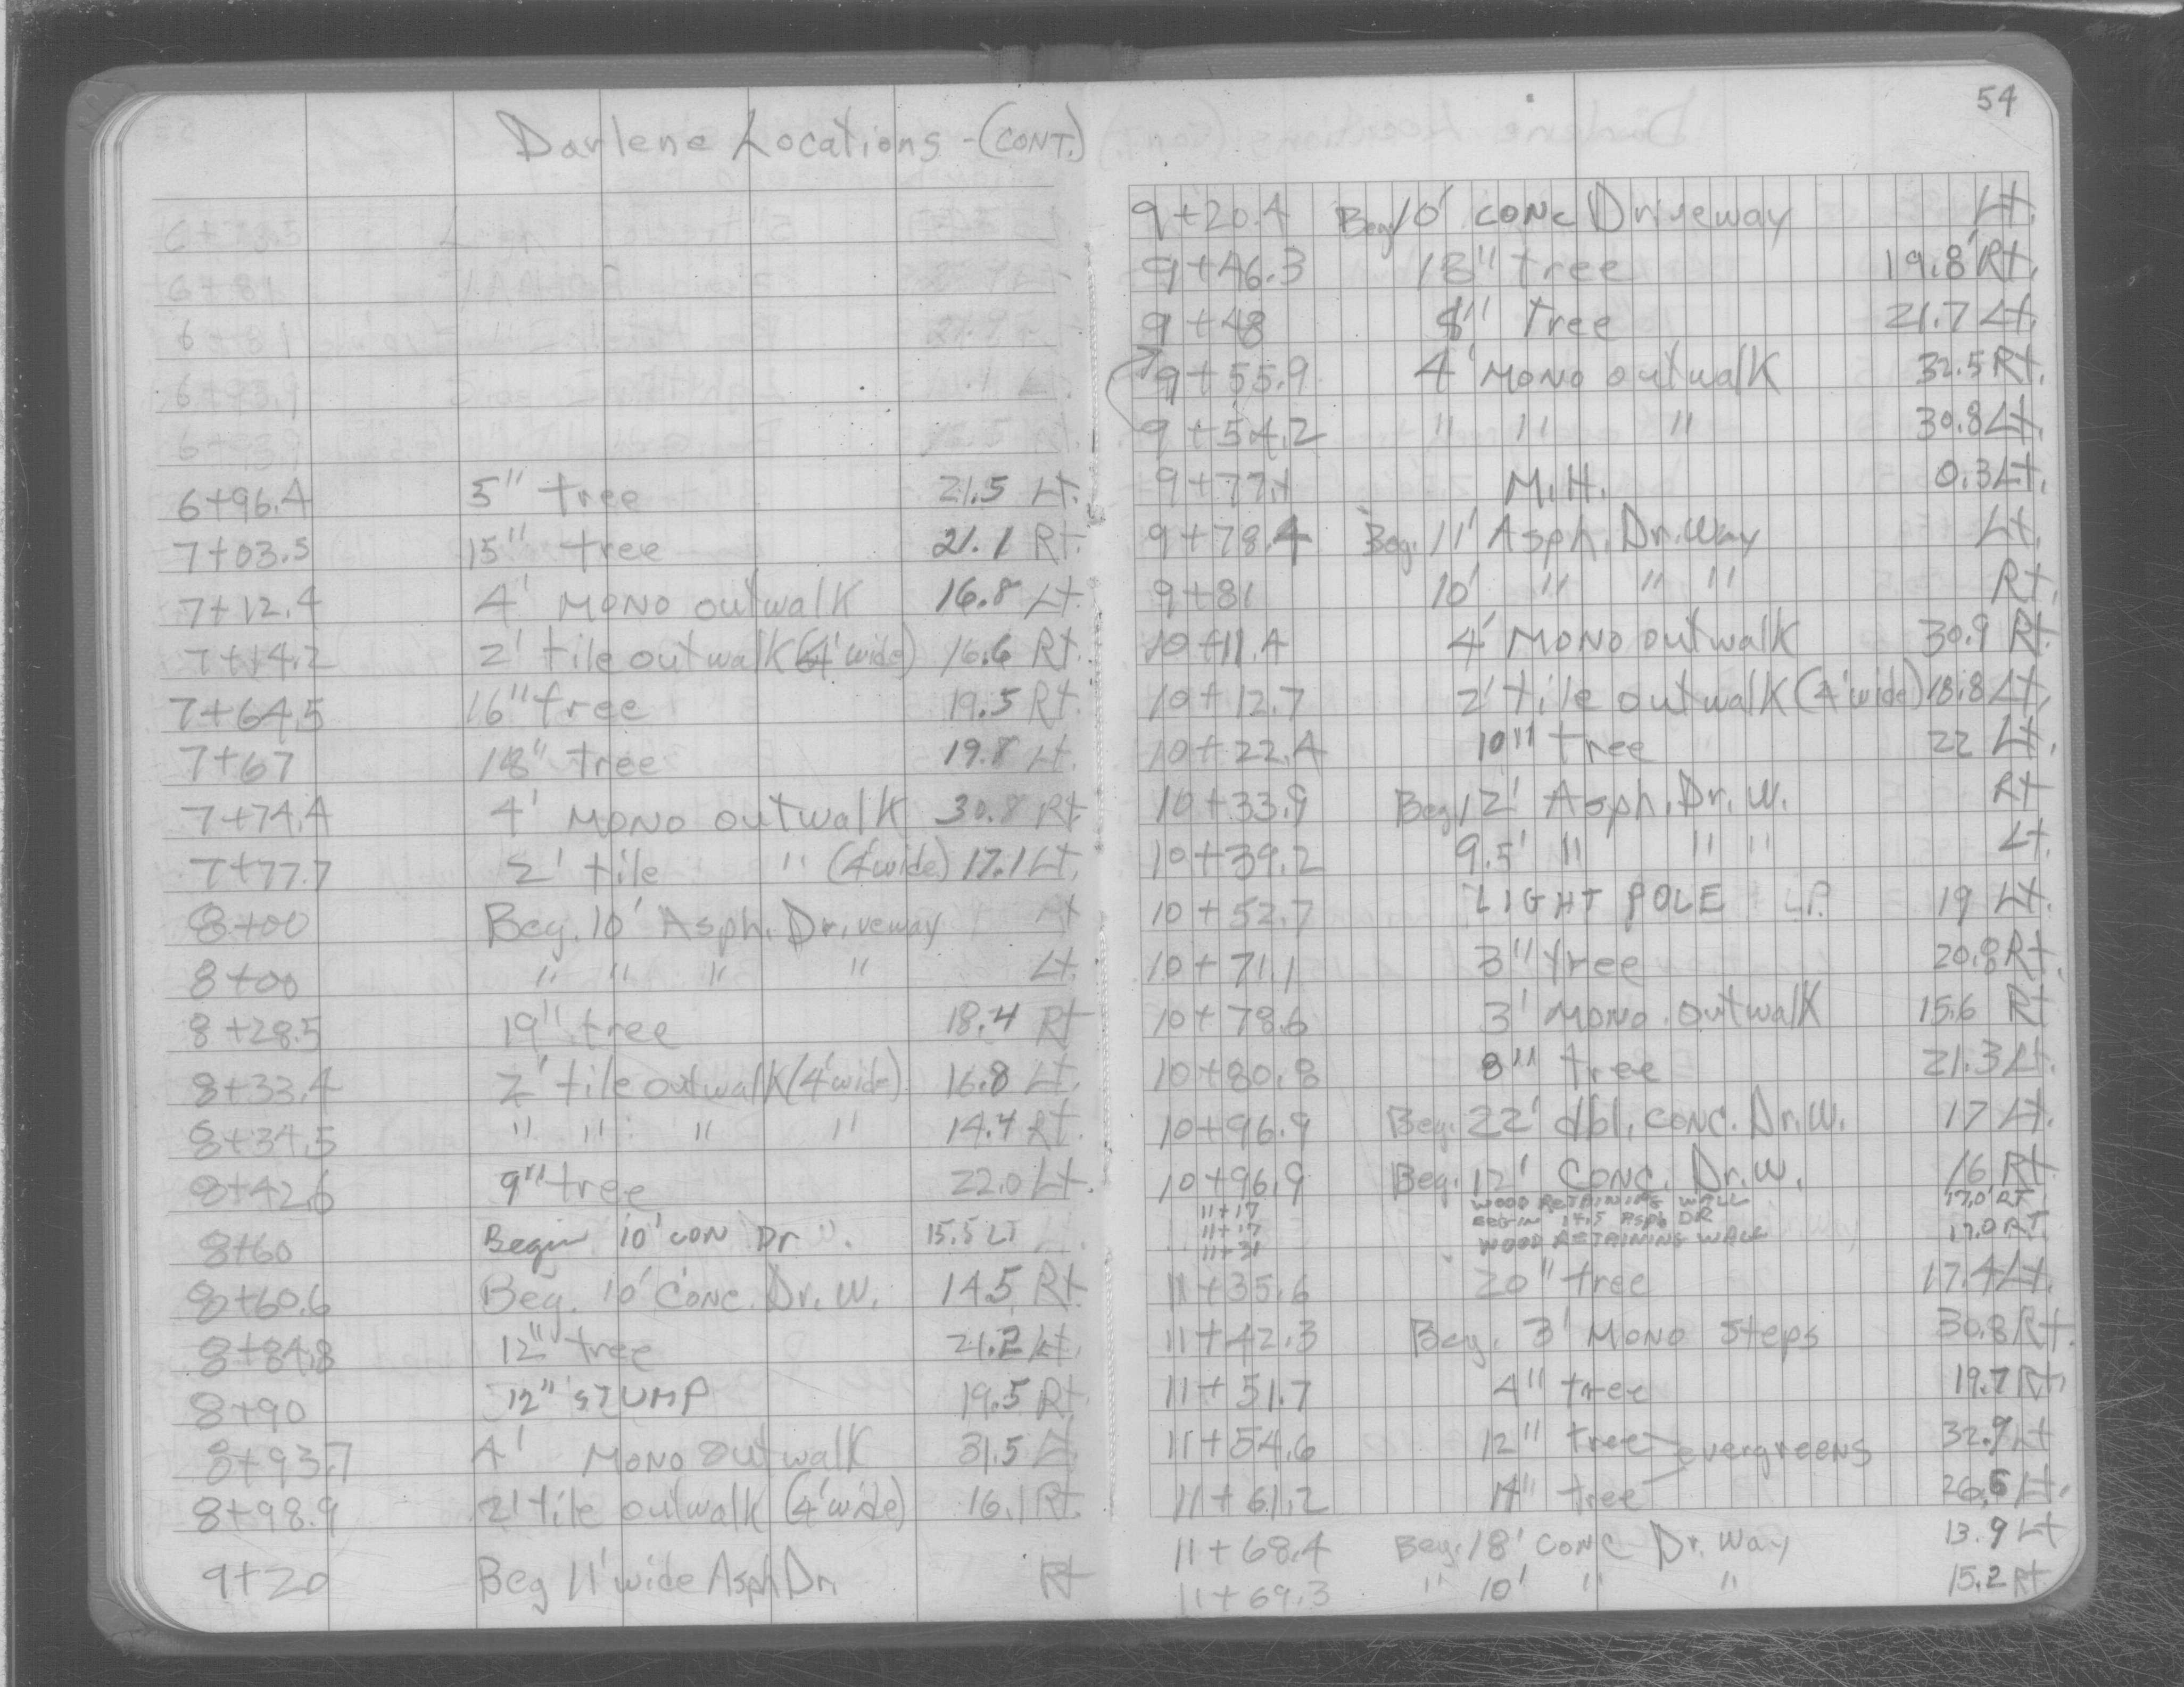 Darlene Locations - (CONT.)
6+73.5
6+81
6+81
6+93.9
6+93.9
6+96.4 5" tree 21.5 Lt.
7+03.5 15" tree 21.1 Rt.
7+12.4 4' MONO outwalk 16.8 Lt.
7+14.2 2' tile outwalk (4' wide) 16.6 Rt.
7+64.5 16" tree 19.5 Rt.
7+67 18" tree 19.8 Lt.
7+74.4 4' MONO outwalk 30.8 Rt.
7+77.7 2' tile " (4' wide) 17.1 Lt.
8+00 Beg. 10' Asph. Driveway Rt
8+00 " " " " Lt.
8+28.5 19" tree 18.4 Rt
8+33.4 2' tile outwalk (4' wide) 16.8 Lt.
8+34.5 " " " " 14.4 Rt.
8+42.6 9" tree 22.0 Lt.
8+60 Begin 10' CON Dr 15.5 Lt
8+60.6 Beg. 10' Conc. Dr. W. 14.5 Rt.
8+84.8 12" tree 21.2 Lt.
8+90 12" STUMP 19.5 Rt.
8+93.7 4' MONO outwalk 31.5 Lt
8+98.9 2' tile outwalk (4' wide) 16.1 Rt.
9+20 Beg 11' wide Asph Dr. Rt
54
9+20.4 Beg 10' CONC Driveway Lt.
9+46.3 18" tree 19.8' Rt.
9+48 8" tree 21.7 Lt.
9+55.9 4' MONO outwalk 32.5 Rt.
9+54.2 " " " 30.8 Lt.
9+77.1 M.H. 0.3 Lt.
9+78.4 Beg. 11' Asph. Dr. Way Lt.
9+81 10' " " " Rt.
10+11.4 4' MONO outwalk 30.9 Rt.
10+12.7 2' tile outwalk (4' wide) 18.8 Lt.
10+22.4 10" tree 22 Lt.
10+33.9 Beg 12' Asph. Dr. W. Rt
10+39.2 9.5' " " " Lt.
10+52.7 LIGHT POLE L.P. 19 Lt.
10+71.1 3" tree 20.8 Rt.
10+78.6 3' MONO. outwalk 15.6 Rt
10+80.8 8" tree 21.3 Lt.
10+96.9 Beg. 22' dbl. CONC. Dr. W. 17 Lt.
10+96.9 Beg. 12' CONC. Dr. W. 16 Rt.
11+17 WOOD RETAINING WALL 17.0' RT
11+17 BEGIN 14.5 Asph DR
11+31 WOOD RETAINING WALL 17.0 RT
11+35.6 20" tree 17.4 Lt.
11+42.3 Beg. 3' MONO Steps 30.8 Rt.
11+51.7 4" tree 19.7 Rt.
11+54.6 12" tree evergreens 32.9 Lt
11+61.2 14" tree 26.6 Lt.
11+68.4 Beg. 18' CONC Dr. Way 13.9 Lt
11+69.3 " 10' " " 15.2 Rt